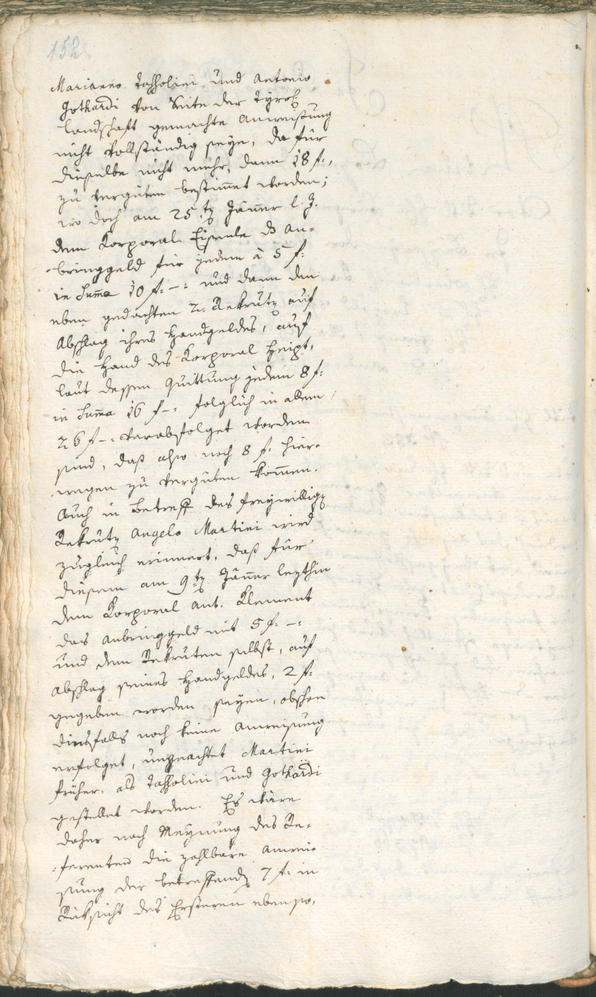 152.
Marianno Tassolini und Antonio
Gothardi von Seite der Tyrol:
Landschaft gemachte Anweisung
nicht vollständig seye, da für
dieselbe nicht mehr, dann 18 f.,
zu verguten bestimmet worden;
wo doch am 25. ten Jäner l. J.
dem Korporal Eisente das An-
bringgeld für jeden à 5 f:
in Summa 10 f. –: und dann den
eben gedachten 2. Rekruten auf
Abschlag ihres Handgeldes, auf
die Hand des Korporal Heigl,
laut dessen Quittung jedem 8 f:
in Summa 16 f –: folglich in allem
26 f –: verabfolget worden
sind, daß also noch 8 f. hier-
wegen zu verguten kommen.
Auch in Betreff des freywilligen
Rekruten Angelo Martini wird
zugleich erinnert, daß für
diesen am 9 ten Jäner letzthin
dem Korporal Ant. Klement
das Anbringgeld mit 5 f. –:
und dem Rekruten selbst, auf
Abschlag seines Handgeldes, 2 f.
gegeben worden seyen, obschon
diesfalls noch keine Anweisung
erfolget, ungeachtet Martini
früher, als Tassolini und Gothardi
gestellet worden. Es wäre
daher nach Meynung des Re-
ferenten die zahlbare Anwei-
sung der betreffenden 7 f. in
Rücksicht des Ersteren ebenso,